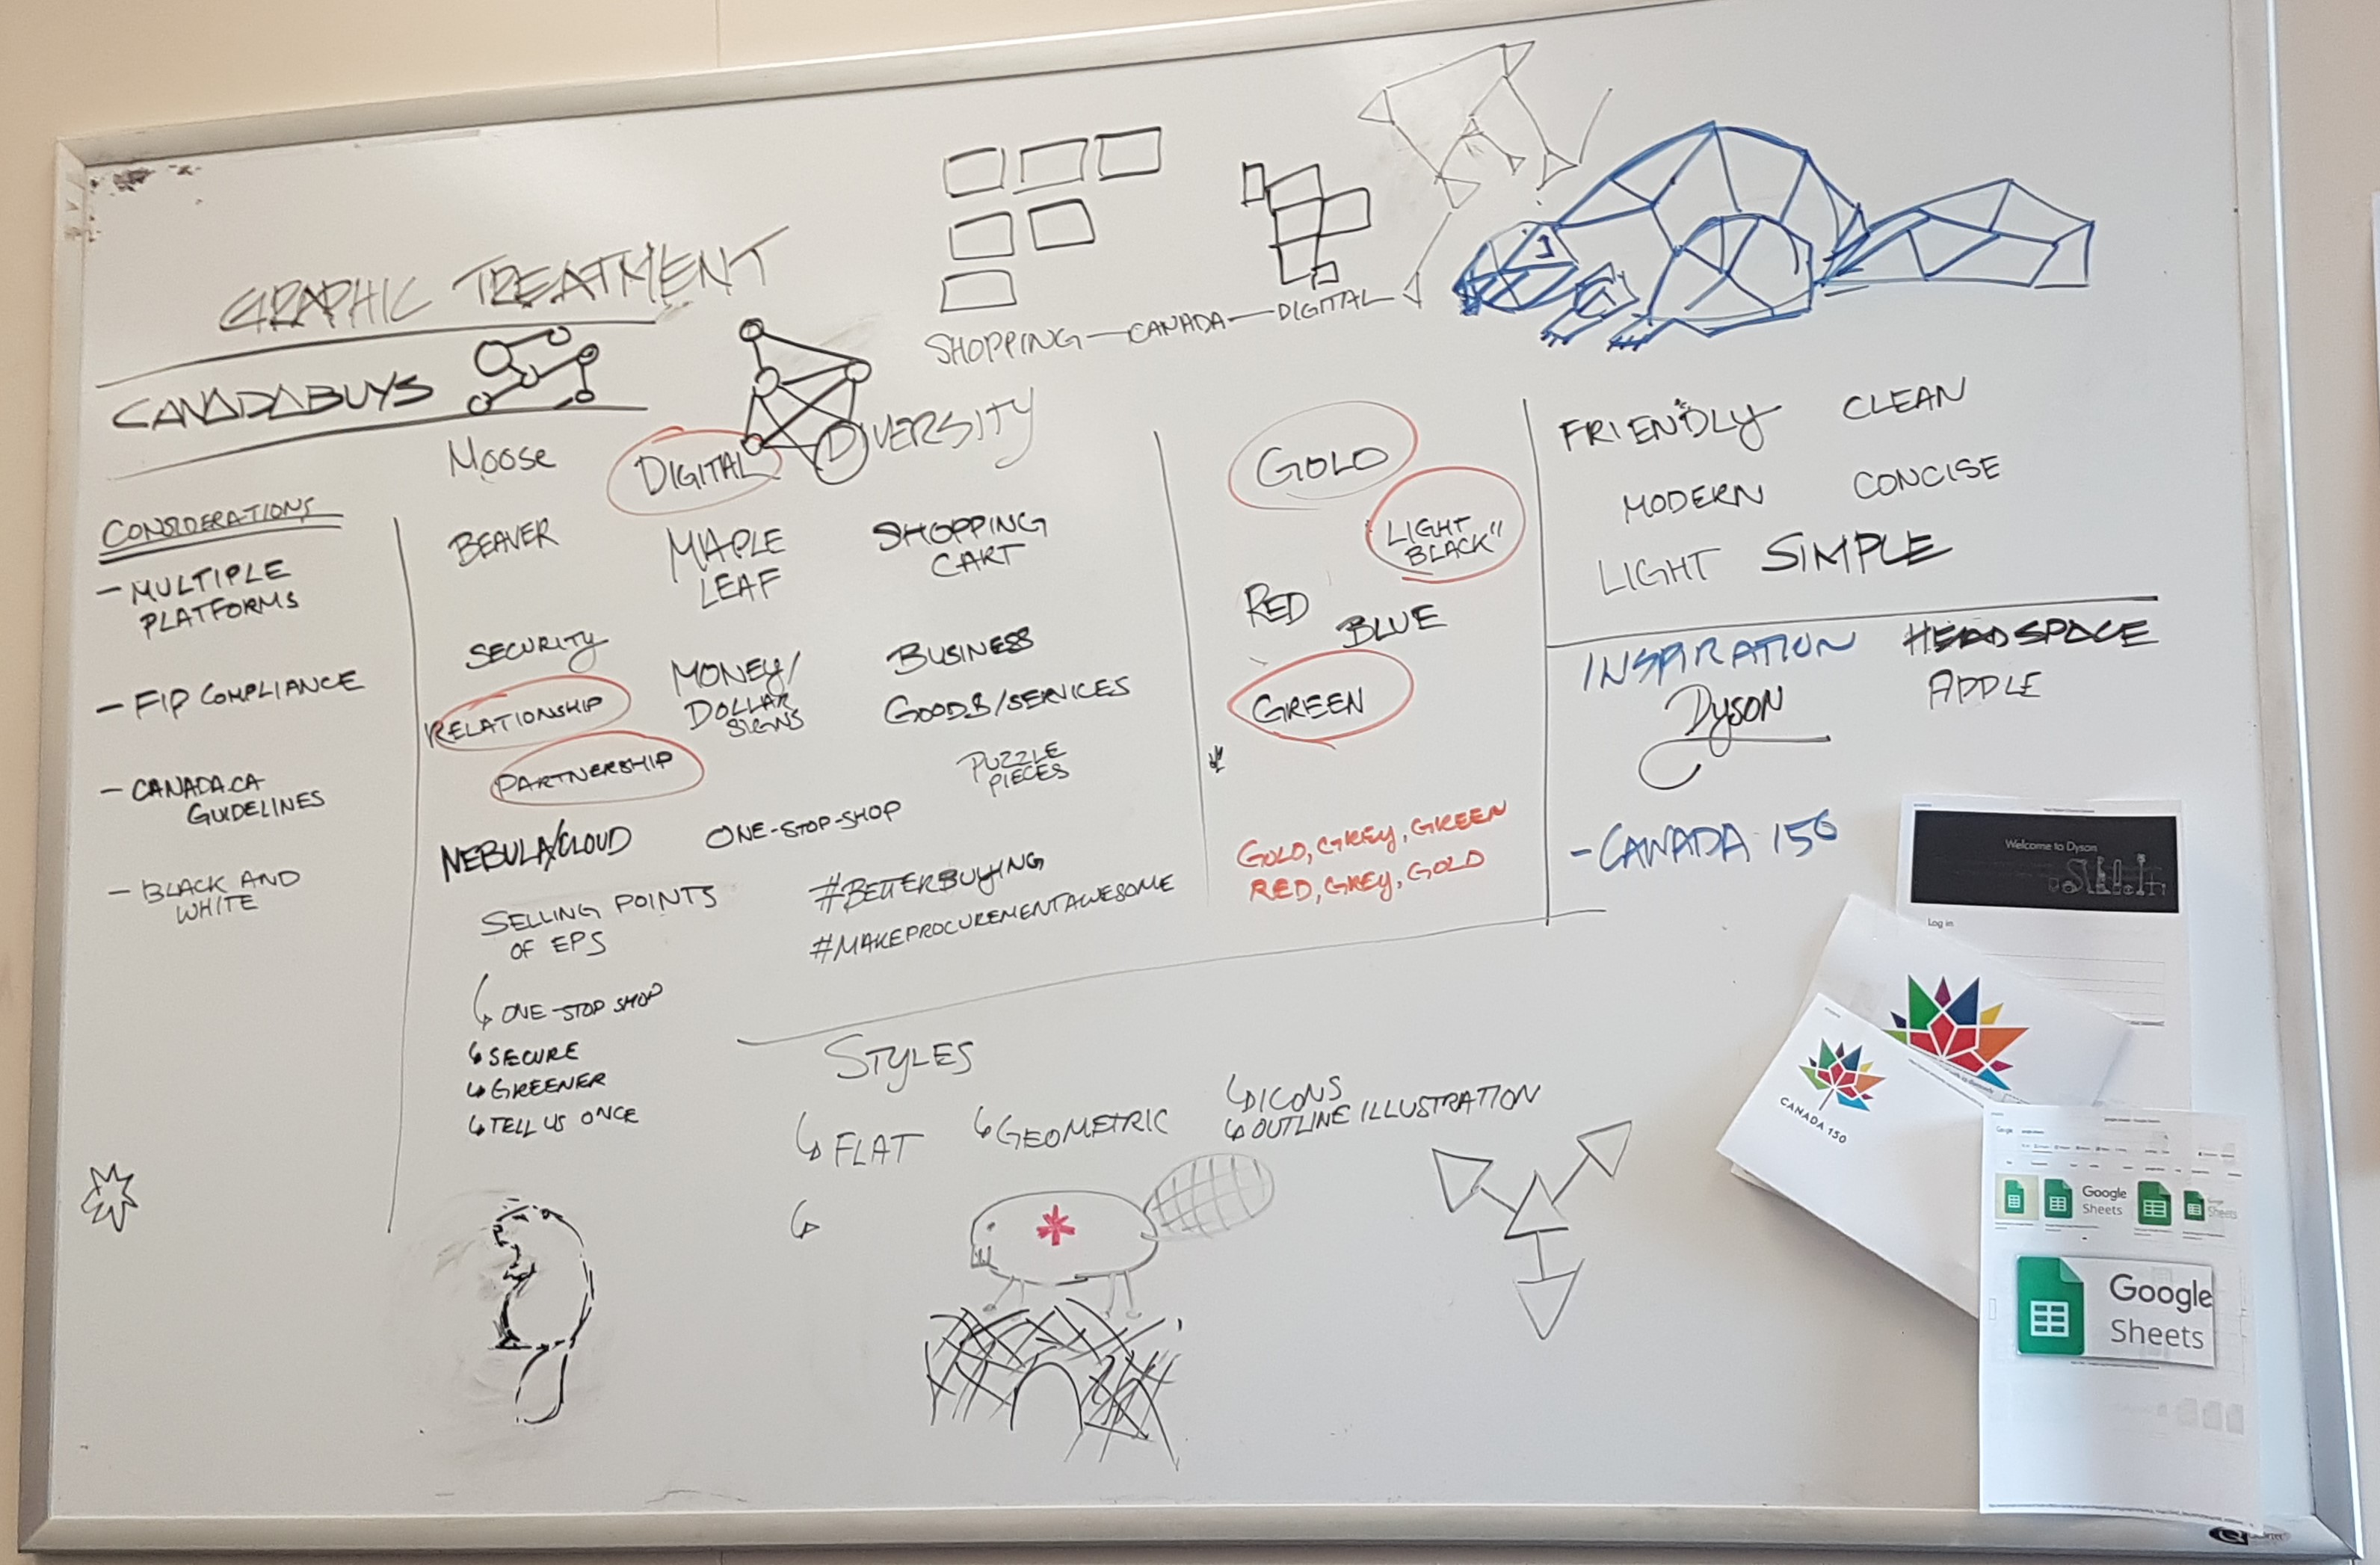 GRAPHIC TREATMENT
CANADABUYS
SHOPPING — CANADA — DIGITAL
CONSIDERATIONS
- MULTIPLE
PLATFORMS
- FIP COMPLIANCE
- CANADA.CA
GUIDELINES
- BLACK AND
WHITE
MOOSE
DIGITAL
DIVERSITY
BEAVER
MAPLE
LEAF
SHOPPING
CART
SECURITY
MONEY/
DOLLAR
SIGNS
BUSINESS
GOODS/SERVICES
RELATIONSHIP
PARTNERSHIP
PUZZLE
PIECES
NEBULA/CLOUD
ONE-STOP-SHOP
SELLING POINTS
OF EPS
#BETTERBUYING
#MAKEPROCUREMENTAWESOME
↳ ONE-STOP SHOP
↳ SECURE
↳ GREENER
↳ TELL US ONCE
GOLD
LIGHT
BLACK"
RED
BLUE
GREEN
GOLD, GREY, GREEN
RED, GREY, GOLD
FRIENDLY CLEAN
MODERN CONCISE
LIGHT SIMPLE
INSPIRATION HEADSPACE
DYSON APPLE
- CANADA 150
STYLES
↳ FLAT
↳ GEOMETRIC
↳ ICONS
↳ OUTLINE ILLUSTRATION
↳
Welcome to Dyson
Log in
CANADA 150
Google
Sheets
Google
Sheets
Google
Sheets